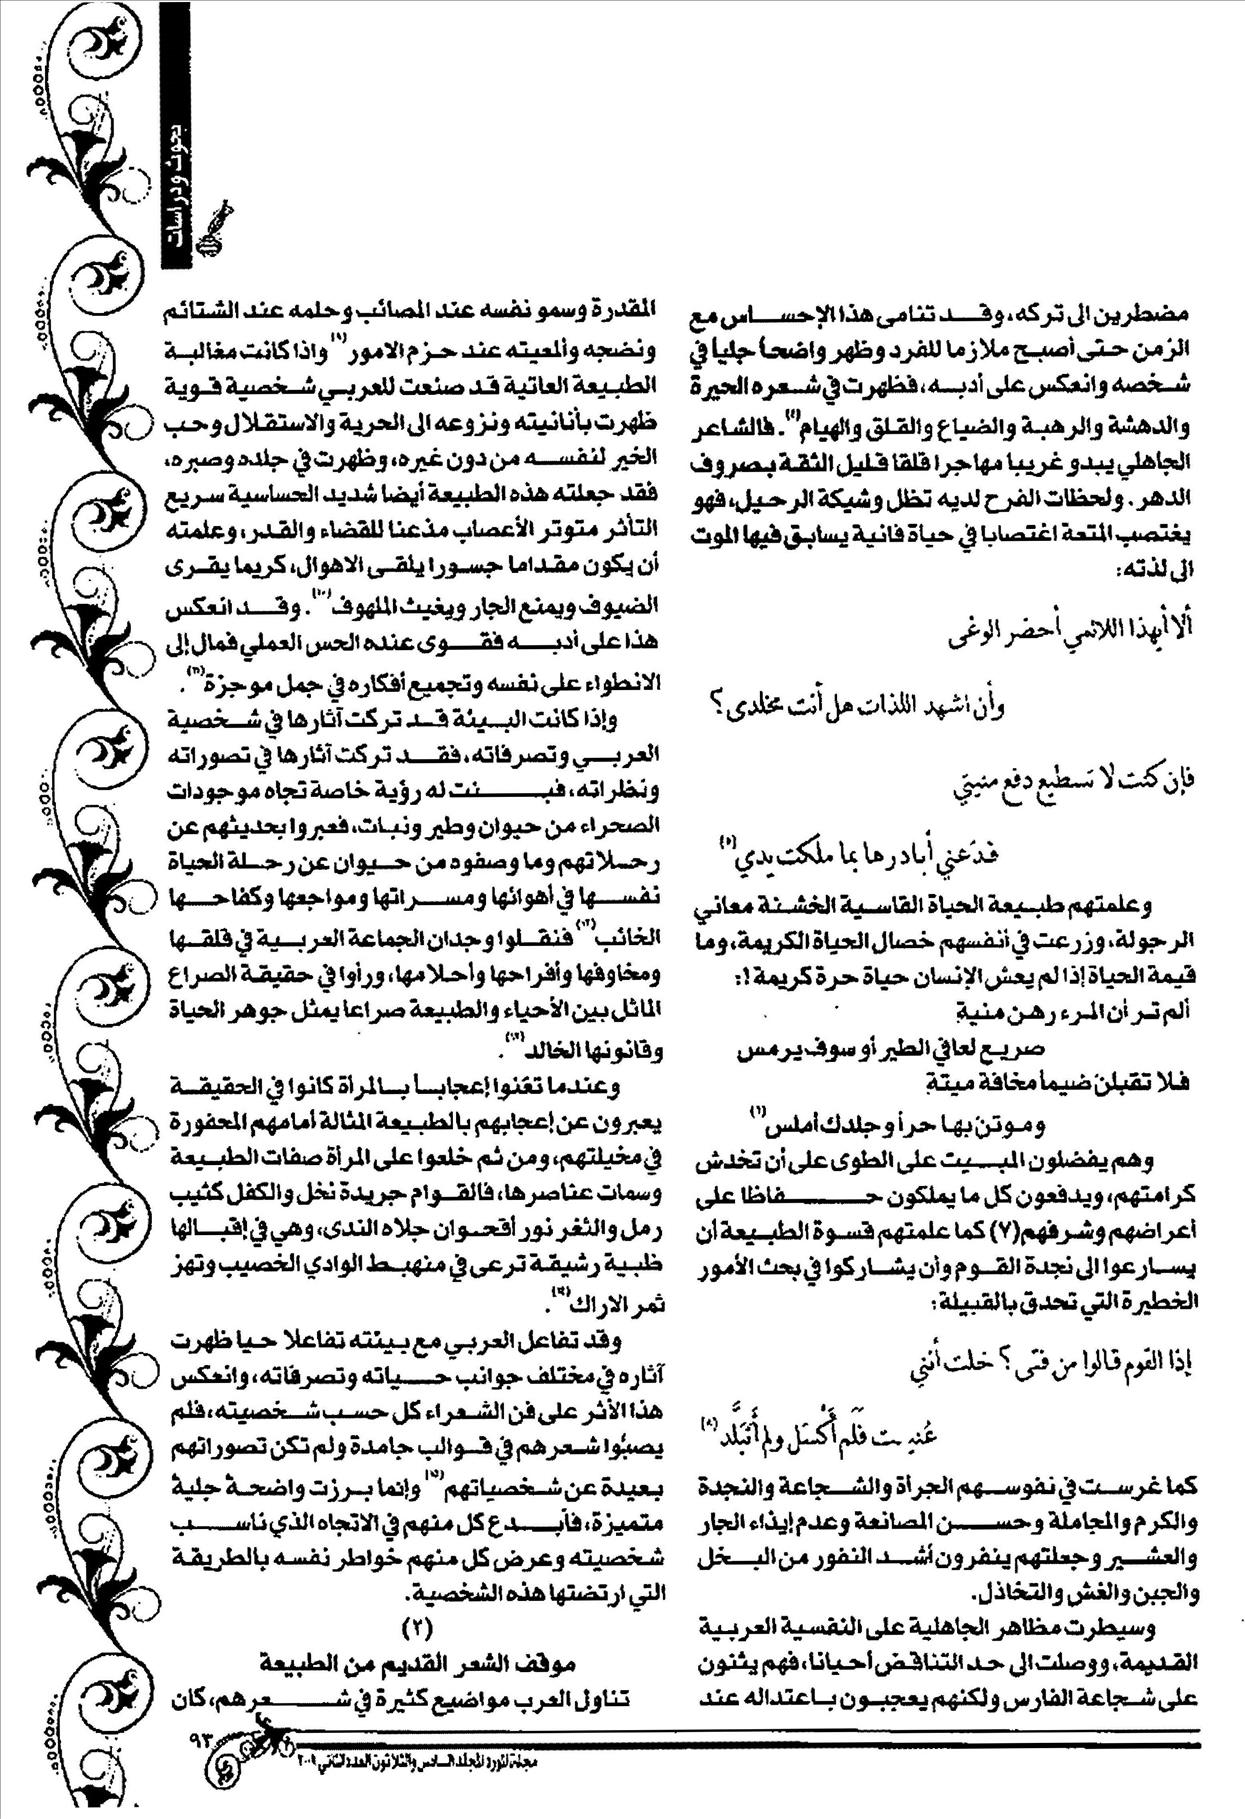 بحوث ودراسات
مضطرين الى تركه، وقد تنامى هذا الإحساس مع
الزمن حتى أصبح ملازما للفرد وظهر واضحاً جلياً في
شخصه وانعكس على أدبه، فظهرت في شعره الحيرة
والدهشة والرهبة والضياع والقلق والهيام(٤). فالشاعر
الجاهلي يبدو غريبا مهاجرا قلقا قليل الثقة بصروف
الدهر. ولحظات الفرح لديه تظل وشيكة الرحيل، فهو
يغتصب المتعة اغتصابا في حياة فانية يسابق فيها الموت
الى لذته:
ألا أيهذا اللائمي أحضر الوغى
وأن اشهد اللذات هل أنت مخلدى؟
فإن كنت لا تسطيع دفع منيتي
فدَعني أبادرها بما ملكت يدي(٥)
وعلمتهم طبيعة الحياة القاسية الخشنة معاني
الرجولة، وزرعت في أنفسهم خصال الحياة الكريمة، وما
قيمة الحياة إذا لم يعش الإنسان حياة حرة كريمة!:
ألم تر أن المرء رهن منية
صريع لعافي الطير أو سوف يرمس
فلا تقبلن ضيماً مخافة ميتة
وموتن بها حراً وجلدك أملس(٦)
وهم يفضلون المبيت على الطوى على أن تخدش
كرامتهم، ويدفعون كل ما يملكون حفاظا على
أعراضهم وشرفهم(٧) كما علمتهم قسوة الطبيعة أن
يسارعوا الى نجدة القوم وأن يشاركوا في بحث الأمور
الخطيرة التي تحدق بالقبيلة:
إذا القوم قالوا من فتى؟ خلت أنني
عُنيت فَلَم أَكْسَل ولم أَتَبَلَّد(٨)
كما غرست في نفوسهم الجرأة والشجاعة والنجدة
والكرم والمجاملة وحسن المصانعة وعدم إيذاء الجار
والعشير وجعلتهم ينفرون أشد النفور من البخل
والجبن والغش والتخاذل.
وسيطرت مظاهر الجاهلية على النفسية العربية
القديمة، ووصلت الى حد التناقض أحيانا، فهم يثنون
على شجاعة الفارس ولكنهم يعجبون باعتداله عند
المقدرة وسمو نفسه عند المصائب وحلمه عند الشتائم
ونضجه وألمعيته عند حزم الامور(٩) واذا كانت مغالبة
الطبيعة العاتية قد صنعت للعربي شخصية قوية
ظهرت بأنانيته ونزوعه الى الحرية والاستقلال وحب
الخير لنفسه من دون غيره، وظهرت في جلده وصبره،
فقد جعلته هذه الطبيعة أيضا شديد الحساسية سريع
التأثر متوتر الأعصاب مذعنا للقضاء والقدر، وعلمته
أن يكون مقداما جسورا يلقى الاهوال، كريما يقرى
الضيوف ويمنع الجار ويغيث الملهوف(١٠). وقد انعكس
هذا على أدبه فقوى عنده الحس العملي فمال إلى
الانطواء على نفسه وتجميع أفكاره في جمل موجزة(١١).
وإذا كانت البيئة قد تركت آثارها في شخصية
العربي وتصرفاته، فقد تركت آثارها في تصوراته
ونظراته، فبنت له رؤية خاصة تجاه موجودات
الصحراء من حيوان وطير ونبات، فعبروا بحديثهم عن
رحلاتهم وما وصفوه من حيوان عن رحلة الحياة
نفسها في أهوائها ومسراتها ومواجعها وكفاحها
الخائب(١٢) فنقلوا وجدان الجماعة العربية في قلقها
ومخاوفها وأفراحها وأحلامها، ورأوا في حقيقة الصراع
الماثل بين الأحياء والطبيعة صراعا يمثل جوهر الحياة
وقانونها الخالد(١٣).
وعندما تغنوا إعجاباً بالمرأة كانوا في الحقيقة
يعبرون عن إعجابهم بالطبيعة المثالة أمامهم المحفورة
في مخيلتهم، ومن ثم خلعوا على المرأة صفات الطبيعة
وسمات عناصرها، فالقوام جريدة نخل والكفل كثيب
رمل والثغر نور أقحوان جلاه الندى، وهي في إقبالها
ظبية رشيقة ترعى في منهبط الوادي الخصيب وتهز
ثمر الاراك(١٤).
وقد تفاعل العربي مع بيئته تفاعلا حيا ظهرت
آثاره في مختلف جوانب حياته وتصرفاته، وانعكس
هذا الأثر على فن الشعراء كل حسب شخصيته، فلم
يصبّوا شعرهم في قوالب جامدة ولم تكن تصوراتهم
بعيدة عن شخصياتهم(١٥) وإنما برزت واضحة جلية
متميزة، فأبدع كل منهم في الاتجاه الذي ناسب
شخصيته وعرض كل منهم خواطر نفسه بالطريقة
التي ارتضتها هذه الشخصية.
(٢)
موقف الشعر القديم من الطبيعة
تناول العرب مواضيع كثيرة في شعرهم، كان
٩٣
مجلة المورد المجلد السادس والثلاثون العدد الثاني ٢٠٠٩